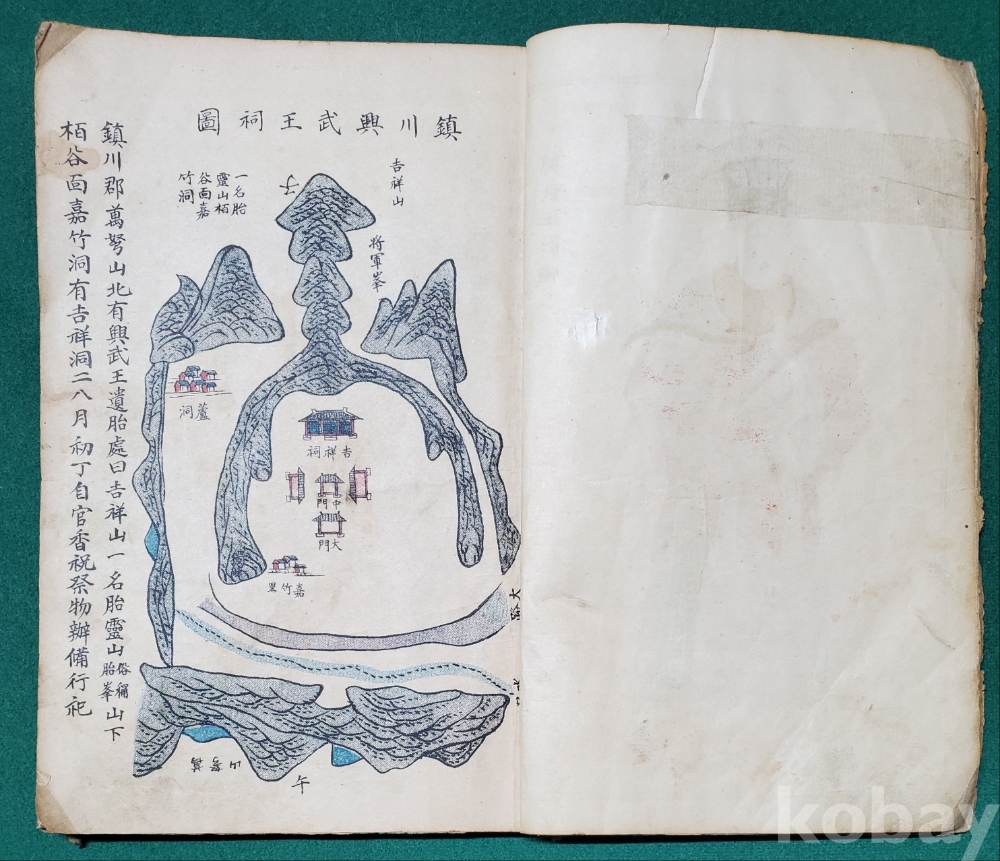 鎮川興武王祠圖
吉祥山
将軍峯
子
一名胎
靈山栢
谷面嘉
竹洞
蘆洞
吉祥祠
中門
大門
嘉竹里
大路
午
鎮川郡萬弩山北有興武王遺胎處曰吉祥山一名胎靈山俗稱胎峯山下
栢谷面嘉竹洞有吉祥洞二八月初丁自官香祝祭物辦備行祀
kobay